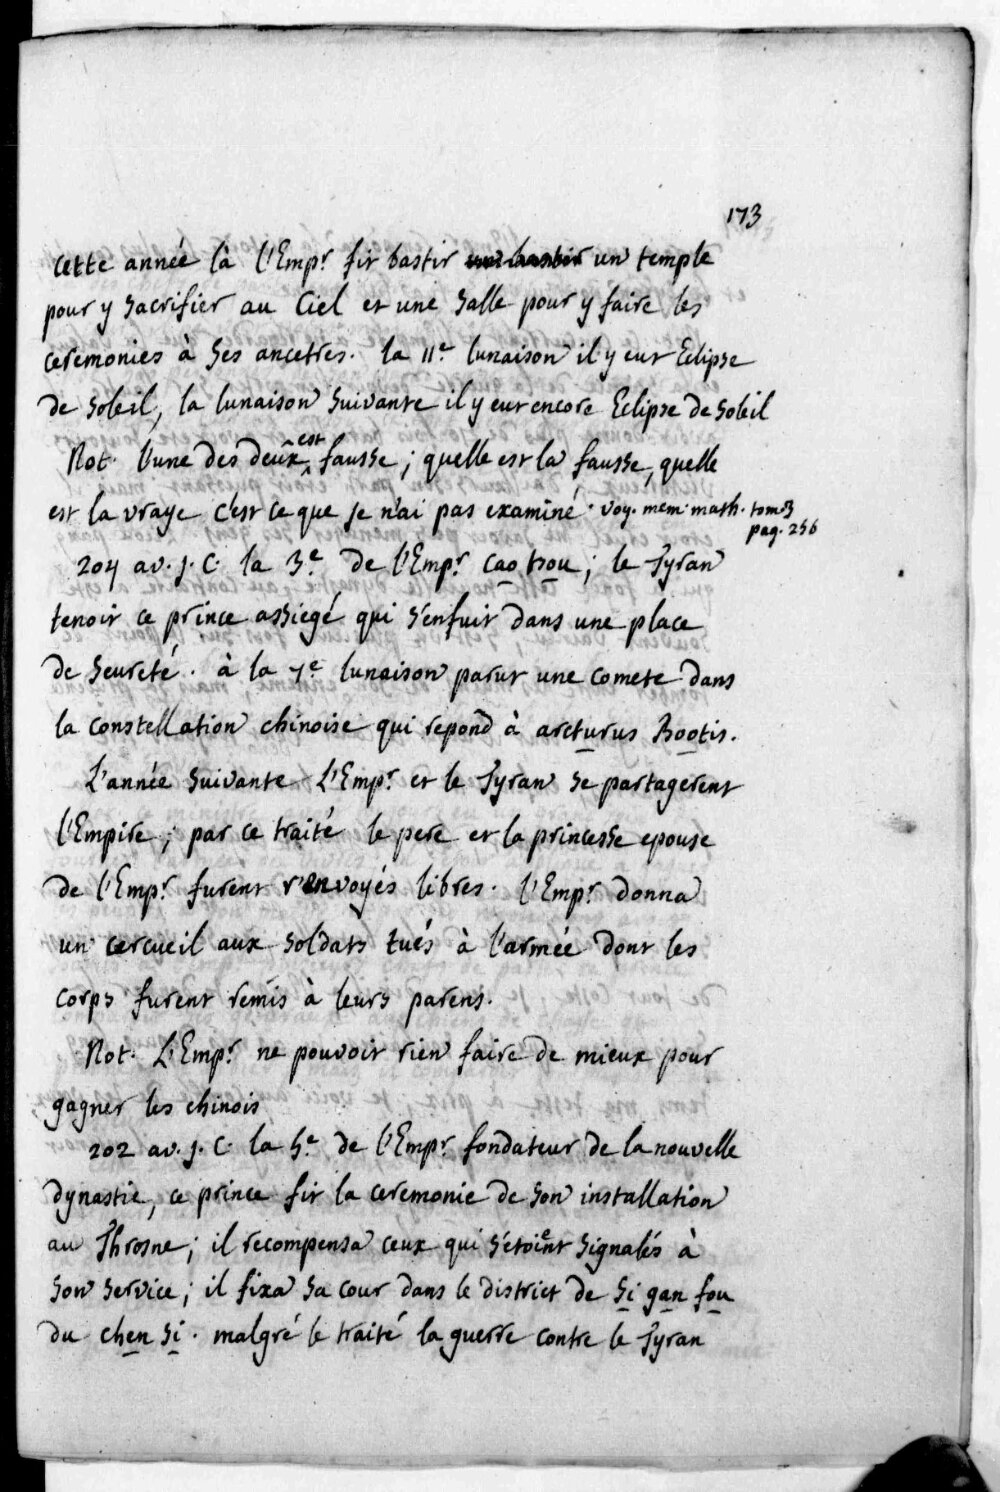 173
cette année là l'Empr. fit bastir un temple
pour y sacrifier au Ciel et une salle pour y faire les
ceremonies à ses ancetres. la 11e lunaison il y eut Eclipse
de soleil, la lunaison suivante il y eut encore Eclipse de soleil
Not. l'une des deux est fausse; quelle est la fausse, quelle
est la vraye c'est ce que je n'ai pas examiné. voy. mem. math. tom. 3
pag. 256
204 av. J. C. la 3e de l'Empr. cao tsou; le Tyran
tenoit ce prince assiegé qui s'enfuit dans une place
de seureté. à la 7e lunaison parut une comete dans
la constellation chinoise qui repond à arcturus Bootis.
L'année suivante L'Empr. et le Tyran se partagerent
l'Empire; par ce traité le pere et la princesse epouse
de l'Empr. furent renvoyés libres. l'Empr. donna
un cercueil aux soldats tués à l'armée dont les
corps furent remis à leurs parens.
Not. L'Empr. ne pouvoit rien faire de mieux pour
gagner les chinois
202 av. J. C. la 5e de l'Empr. fondateur de la nouvelle
dynastie, ce prince fit la ceremonie de son installation
au Throsne; il recompensa ceux qui s'etoient signalés à
son service; il fixa sa cour dans le district de Si gan fou
du chen si. malgré le traité la guerre contre le Tyran